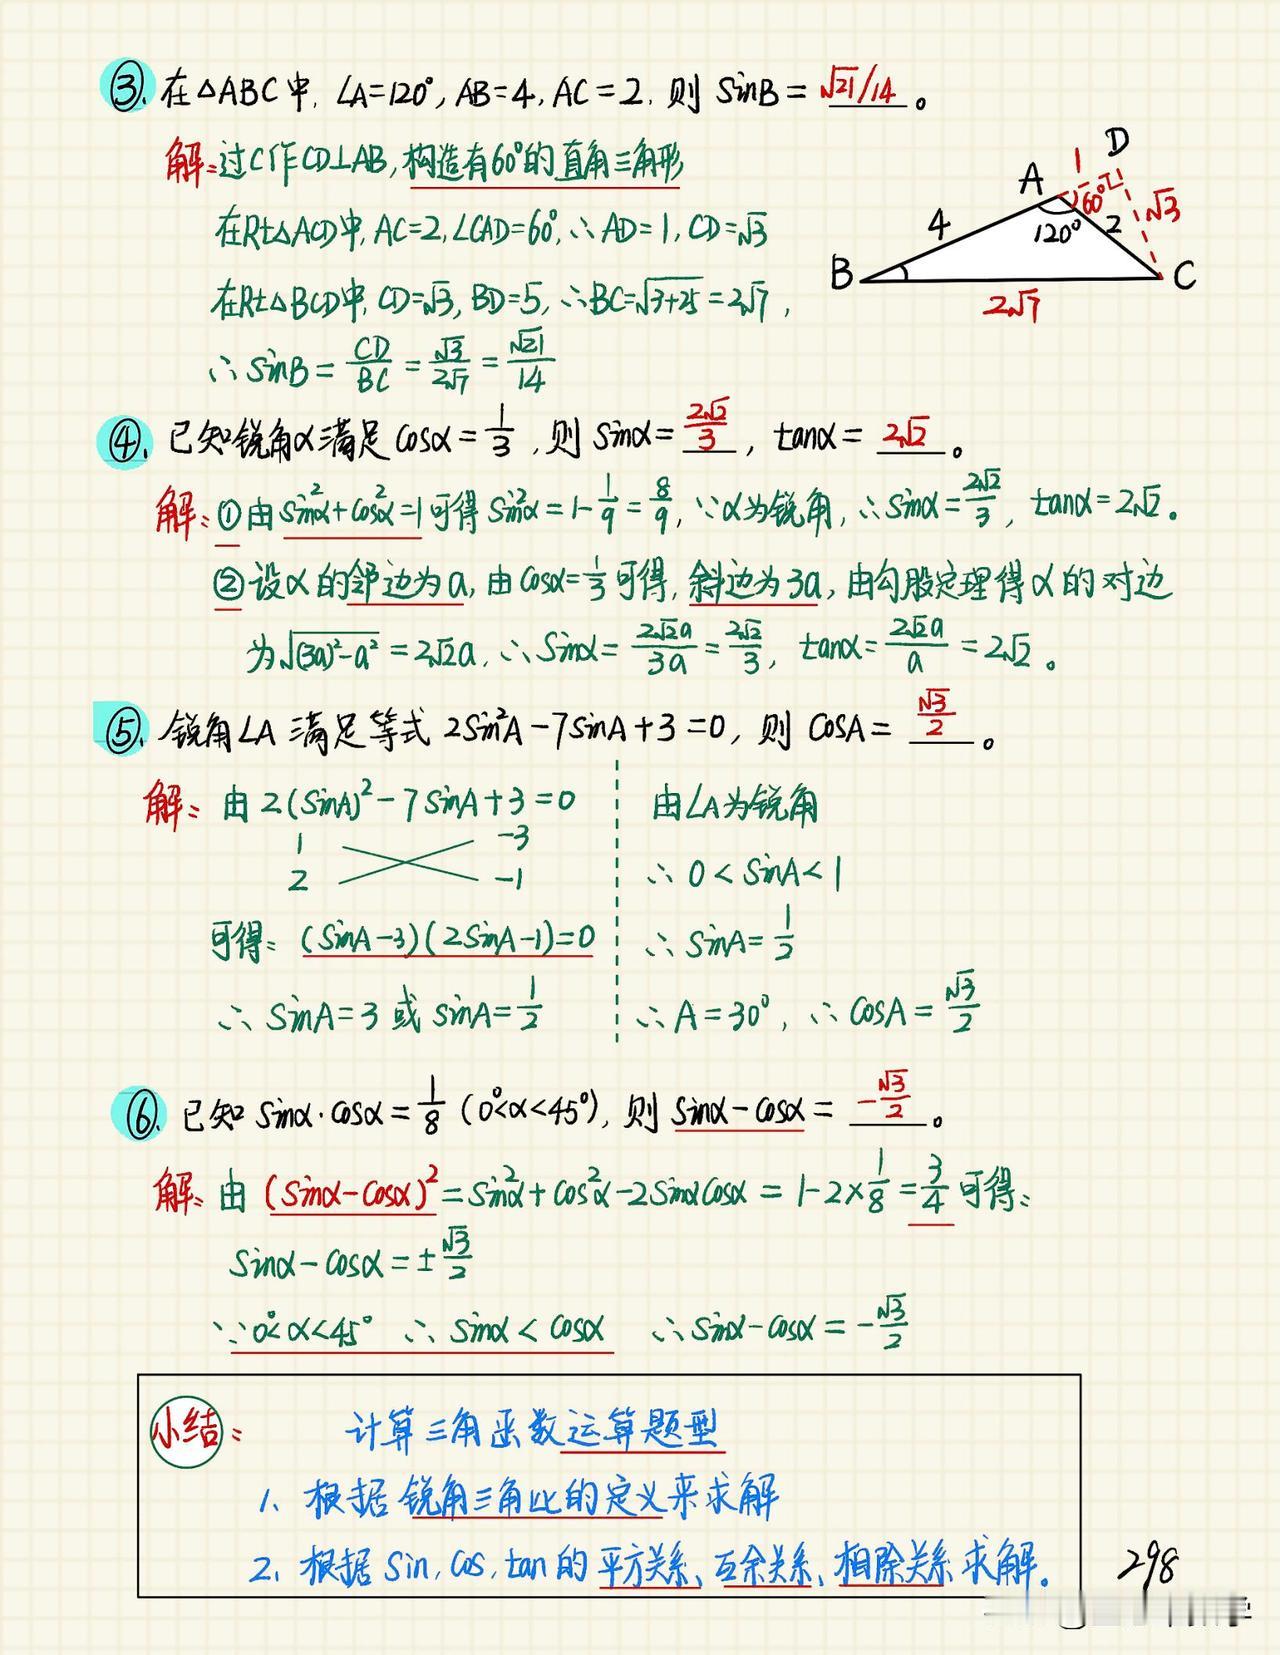 ③. 在△ABC中, ∠A=120°, AB=4, AC=2, 则 sinB= √21/14 。
解: 过C作CD⊥AB, 构造有60°的直角三角形
在Rt△ACD中, AC=2, ∠CAD=60°, ∴AD=1, CD=√3
在Rt△BCD中, CD=√3, BD=5, ∴BC=√3+25=2√7,
∴ sinB = CD/BC = √3/2√7 = √21/14
A B C D 4 2 1 √3 60° 120° 2√7
④. 已知锐角α满足 cosα=1/3, 则 sinα= 2√2/3, tanα= 2√2 。
解: ①由sin²α+cos²α=1可得 sin²α=1-1/9=8/9, ∵α为锐角, ∴sinα=2√2/3, tanα=2√2.
②设α的邻边为a, 由cosα=1/3可得, 斜边为3a, 由勾股定理得α的对边
为√(3a)²-a² = 2√2a, ∴sinα= 2√2a/3a = 2√2/3, tanα= 2√2a/a = 2√2 。
⑤. 锐角∠A 满足等式 2sin²A-7sinA+3=0, 则 cosA= √3/2 。
解: 由 2(sinA)²-7sinA+3=0
1 -3
2 -1
可得: (sinA-3)(2sinA-1)=0
∴ sinA=3 或 sinA=1/2
由∠A为锐角
∴ 0<sinA<1
∴ sinA=1/2
∴ A=30°, ∴ cosA=√3/2
⑥. 已知 sinα·cosα=1/8 (0°<α<45°), 则 sinα-cosα= -√3/2 。
解: 由 (sinα-cosα)²=sin²α+cos²α-2sinαcosα=1-2×1/8=3/4 可得:
sinα-cosα=±√3/2
∵ 0°<α<45° ∴ sinα<cosα ∴sinα-cosα=-√3/2
小结: 计算三角函数运算题型
1. 根据锐角三角比的定义来求解
2. 根据 sin, cos, tan 的平方关系、互余关系、相除关系求解.
298